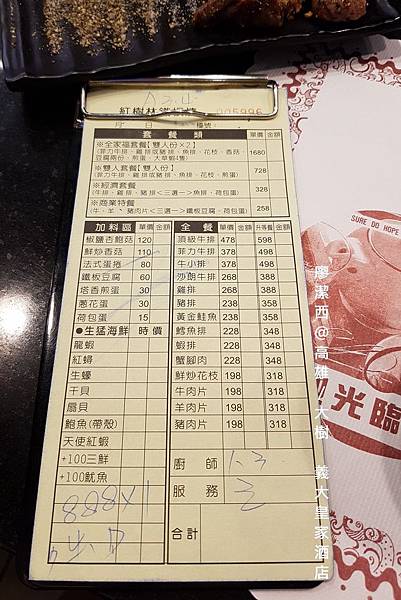 紅樹林鐵板燒 005996
月 日 檯號:
套餐類 單價 金額
※全家福套餐【雙人份×2】 1680
(菲力牛排、雞排或豬排、魚排、花枝、香菇
豆腐兩份、煎蛋、大草蝦4隻)
※雙人套餐【雙人份】 728
(菲力牛排、雞排或豬排、魚排、花枝、煎蛋)
※經濟套餐 328
(牛排、雞排、豬排<三選一>魚排、荷包蛋)
※商業特餐 258
(牛、羊、豬肉片<三選一>鐵板豆腐、荷包蛋)
加料區 單價 金額 全餐 單價 金額 升等餐 金額
椒鹽杏鮑菇 120 頂級牛排 478 598
鮮炒香菇 110 菲力牛排 478 498
法式蛋捲 80 牛小排 378 498
鐵板豆腐 60 莎朗牛排 268 388
塔香煎蛋 30 雞排 268 388
蔥花蛋 30 豬排 238 358
荷包蛋 15 黃金鮭魚 238 358
●生猛海鮮 時價 鱈魚排 228 348
龍蝦 蝦排 228 348
紅蟳 蟹腳肉 228 348
生蠔 鮮炒花枝 198 318
干貝 牛肉片 198 318
扇貝 羊肉片 198 318
鮑魚(帶殼) 豬肉片 198 318
天使紅蝦
+100三鮮 廚師
+100魷魚 服務
888×1
合計
SURE DO HOPE
光臨
廖潔西@高雄 大樹 義大皇家酒店